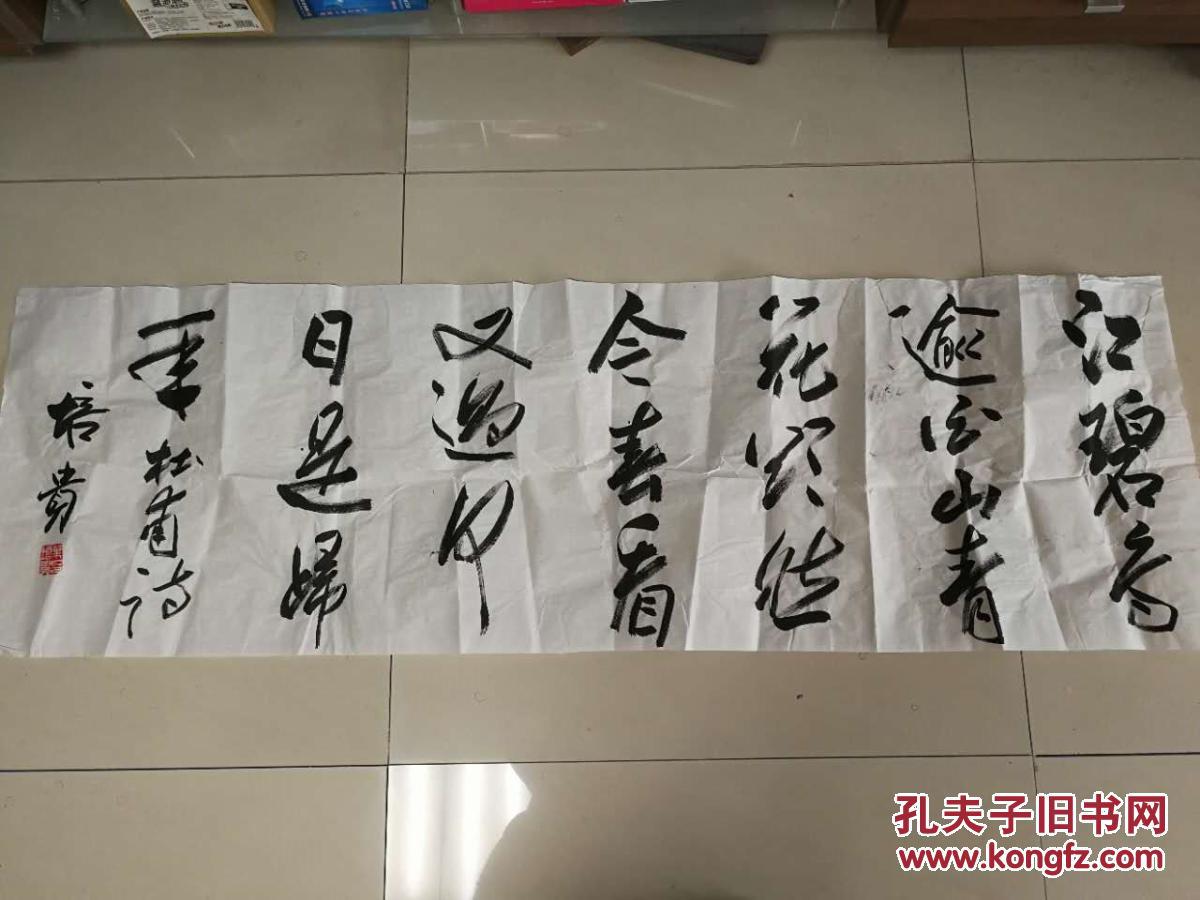 江碧鳥
逾白山青
花欲然
今春看
又過何
日是歸
年杜甫詩
培貴
孔夫子旧书网
www.kongfz.com